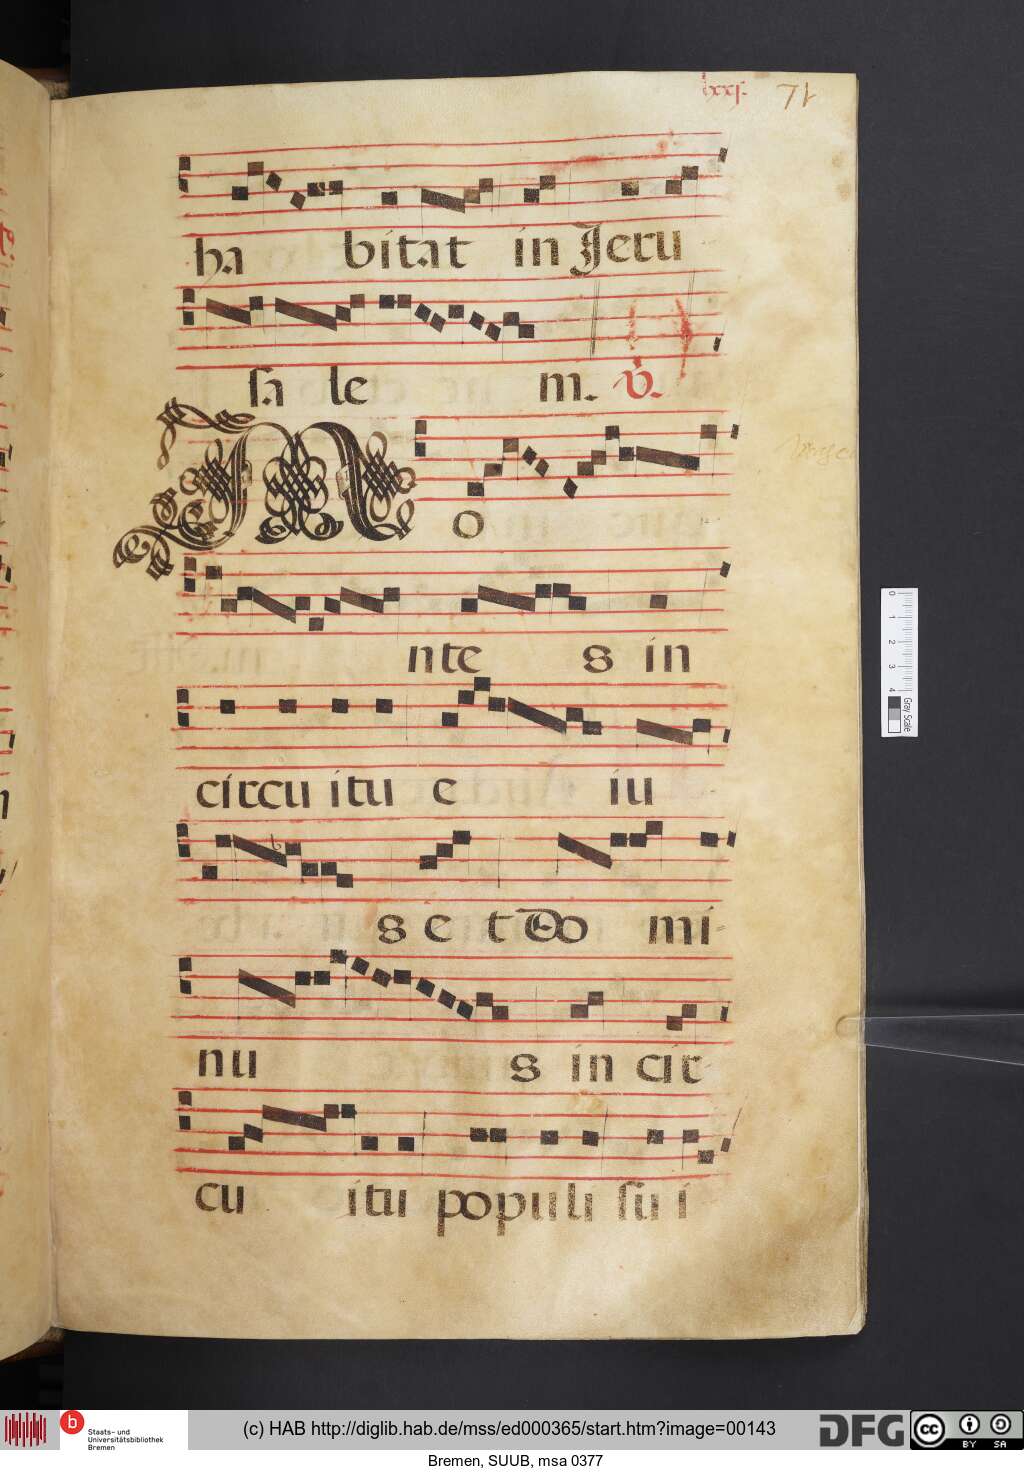 lxxj. 71
ha bitat in Jeru
sa le m. ℣.
M o
nte s in
circu itu e iu
s et Do mi
nu s in cir
cu itu populi sui
0 1 2 3 4
Gray Scale
b Staats- und Universitätsbibliothek Bremen
(c) HAB http://diglib.hab.de/mss/ed000365/start.htm?image=00143
DFG
cc BY SA
Bremen, SUUB, msa 0377